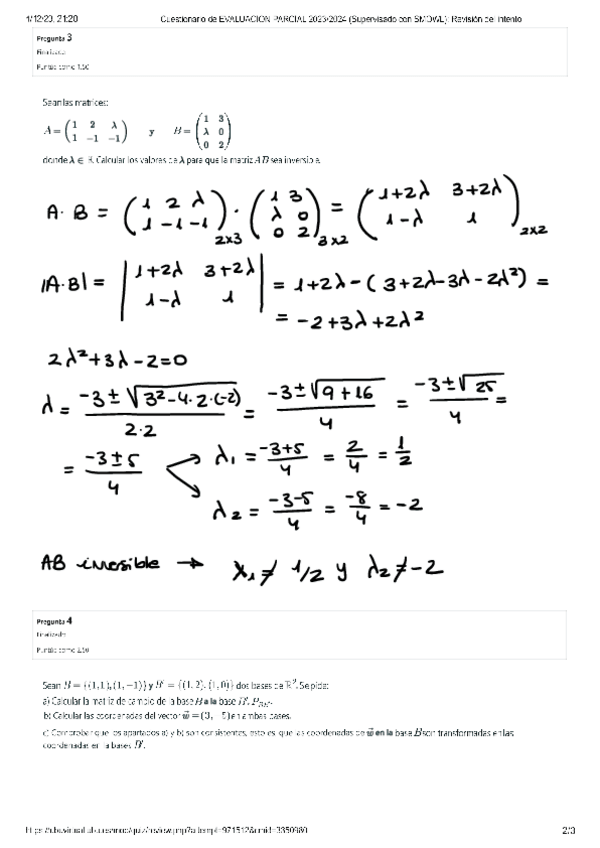 1/12/23, 21:28 Cuestionario de EVALUACIÓN PARCIAL 2023/2024 (Supervisado con SMOWL): Revisión del intento
Pregunta 3
Finalizado
Puntúa como 1,50
Sean las matrices:
A = ( 1 2 λ ; 1 −1 −1 ) y B = ( 1 3 ; λ 0 ; 0 2 )
donde λ ∈ ℝ. Calcular los valores de λ para que la matriz AB sea inversible.
A · B = ( 1 2 λ ; 1 −1 −1 )2x3 · ( 1 3 ; λ 0 ; 0 2 )3x2 = ( 1+2λ 3+2λ ; 1−λ 1 )2x2
|A·B| = | 1+2λ 3+2λ ; 1−λ 1 | = 1+2λ−(3+2λ−3λ−2λ²) =
= −2+3λ+2λ²
2λ²+3λ−2=0
λ = (−3±√(3²−4·2·(−2)))/(2·2) = (−3±√(9+16))/4 = (−3±√25)/4 =
= (−3±5)/4
λ₁ = (−3+5)/4 = 2/4 = 1/2
λ₂ = (−3−5)/4 = −8/4 = −2
AB inversible → λ₁≠ 1/2 y λ₂≠−2
Pregunta 4
Finalizado
Puntúa como
Sean B = {(1,1),(1,−1)} y B′ = {(1,2),(1,0)} dos bases de ℝ². Se pide:
a) Calcular la matriz de cambio de la base B a la base B′, P_BB′.
b) Calcular las coordenadas del vector w⃗ = en ambas bases.
c) Comprobar que los apartados a) y b) son consistentes, esto es, que las coordenadas de w⃗ en la base B son transformadas en las
coordenadas en la bases B′.
2/3